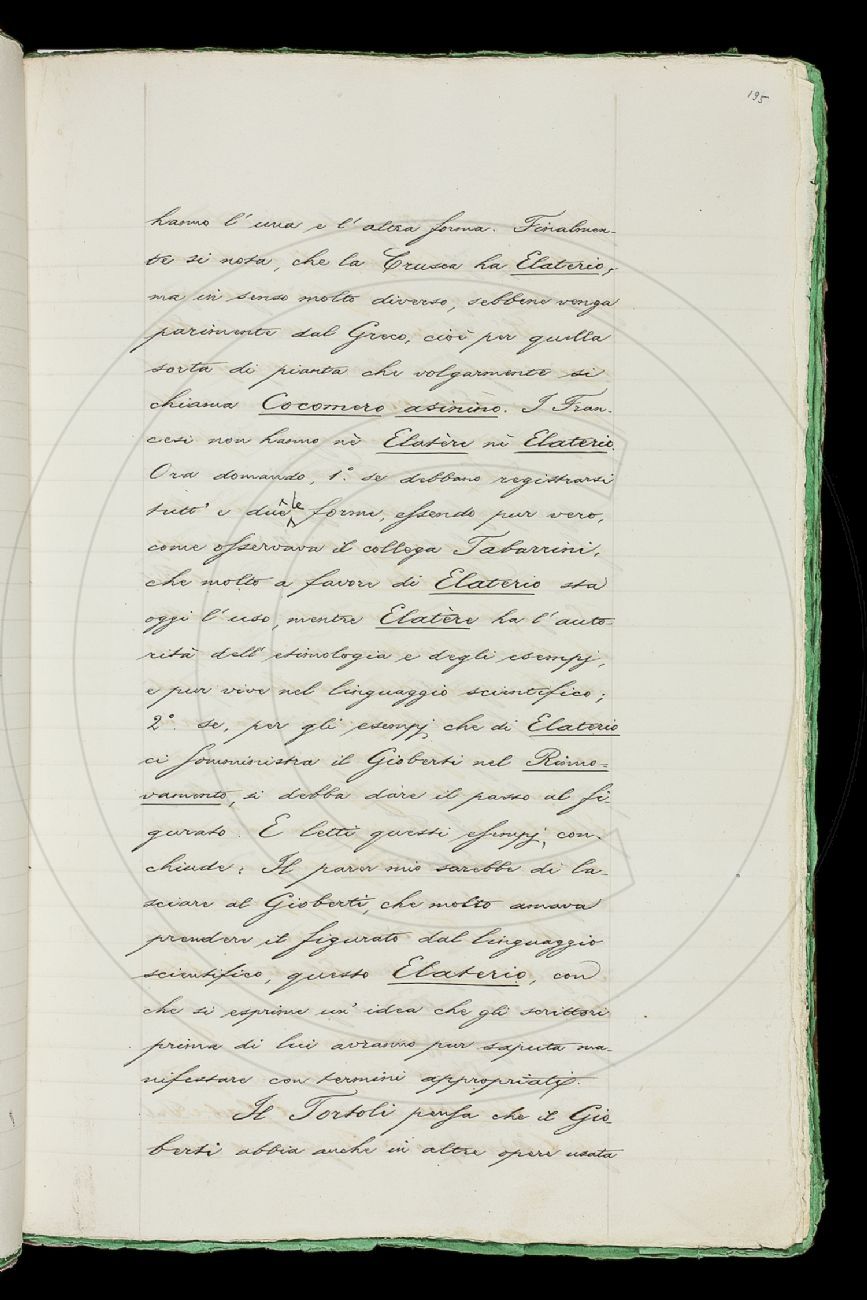 195
hanno l' una e l' altra forma. Finalmen-
te si nota, che la Crusca ha Elaterio,
ma in senso molto diverso, sebbene venga
parimente dal Greco, cioè per quella
sorta di pianta che volgarmente si
chiama Cocomero asinino. I Fran-
cesi non hanno nè Elatère nè Elaterio.
Ora domando, 1.° se debbano registrarsi
tutt' e due le forme, essendo pur vero,
come osservava il collega Tabarrini,
che molto a favore di Elaterio sta
oggi l' uso, mentre Elatère ha l' auto-
rità dell' etimologia e degli esempj,
e pur vive nel linguaggio scientifico;
2°. se, per gli esempj che di Elaterio
ci somministra il Gioberti nel Rinno-
vamento, si debba dare il passo al fi-
gurato. E letti questi esempj, con-
chiude: Il parer mio sarebbe di la-
sciare al Gioberti, che molto amava
prendere il figurato dal linguaggio
scientifico, questo Elaterio, con
che si esprime un' idea che gli scrittori
prima di lui avranno pur saputa ma-
nifestare con termini appropriati.
Il Tortoli pensa che il Gio-
berti abbia anche in altre opere usata